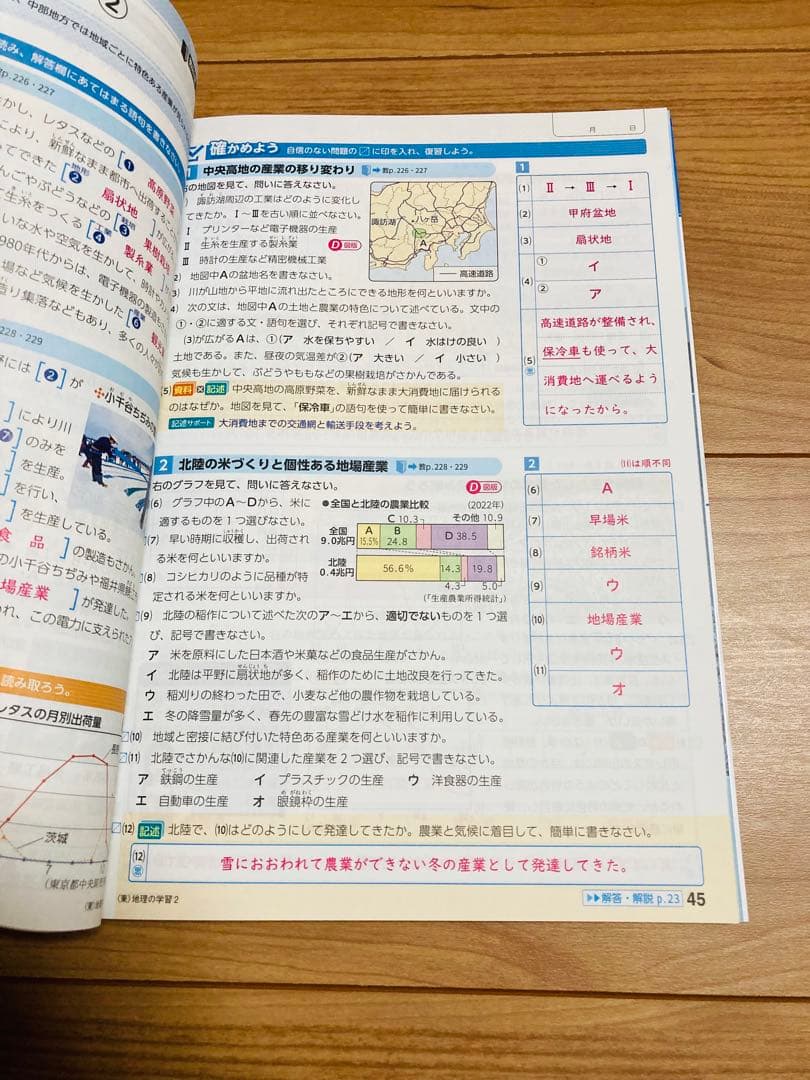 ②
、中部地方では地域ごとに特色ある産業が
読み、解答欄にあてはまる語句を書きなさい。
教p.226・227
かし、レタスなどの[①
高原野菜
により、新鮮なまま都市へ出荷する
てできた[② 地形
扇状地
んごやぶどうなどの[③ 栽培
果樹栽培
生糸をつくる[④ 工業
製糸業
いな水や空気を生かして、
980年代からは、電子機器の製
場など気候を生かした[⑥ 産業
造り集落などもあり、多くの人
228・229
には[②]が
小千谷ちぢみの
]により川
⑦]のみを
]を生産。
]を行い、
]を生産している。
食品]の製造もさか
の小千谷ちぢみや福井県
場産業]が発達した。
われ、この電力に支えられた
読み取ろう。
レタスの月別出荷量
茨城
7
10
(東京都中央卸売
月 日
確かめよう 自信のない問題の□に印を入れ、復習しよう。
1 中央高地の産業の移り変わり 教p.226・227
の地図を見て、問いに答えなさい。
諏訪湖周辺の工業はどのように変化し
てきたか。Ⅰ～Ⅲを古い順に並べなさい。
Ⅰ プリンターなど電子機器の生産
Ⅱ 生糸を生産する製糸業 D図版
Ⅲ 時計の生産など精密機械工業
諏訪湖
八ヶ岳
A
高速道路
2) 地図中Aの盆地名を書きなさい。
3) 川が山地から平地に流れ出たところにできる地形を何といいますか。
4) 次の文は、地図中Aの土地と農業の特色について述べている。文中の
①・②に適する文・語句を選び、それぞれ記号で書きなさい。
(3)が広がるAは、①(ア 水を保ちやすい / イ 水はけの良い )
土地である。また、昼夜の気温差が②(ア 大きい / イ 小さい )
気候も生かして、ぶどうやももなどの果樹栽培がさかんである。
(5) 資料×記述 中央高地の高原野菜を、新鮮なまま大消費地に届けられる
のはなぜか。地図を見て、「保冷車」の語句を使って簡単に書きなさい。
記述サポート 大消費地までの交通網と輸送手段を考えよう。
1
(1) Ⅱ → Ⅲ → Ⅰ
(2) 甲府盆地
(3) 扇状地
(4) ① イ
② ア
(5) 高速道路が整備され、
保冷車も使って、大
消費地へ運べるよう
になったから。
2 北陸の米づくりと個性ある地場産業 教p.228・229
右のグラフを見て、問いに答えなさい。 D図版
(6) グラフ中のA～Dから、米に
適するものを1つ選びなさい。
(7) 早い時期に収穫し、出荷され
る米を何といいますか。
(8) コシヒカリのように品種が特
定される米を何といいますか。
●全国と北陸の農業比較 (2022年)
C 10.3 その他 10.9
全国 9.0兆円 A 15.5% B 24.8 D 38.5
北陸 0.4兆円 56.6% 14.3 19.8
4.3 5.0
(「生産農業所得統計」)
(9) 北陸の稲作について述べた次のア～エから、適切でないものを1つ選
び、記号で書きなさい。
ア 米を原料にした日本酒や米菓などの食品生産がさかん。
イ 北陸は平野に扇状地が多く、稲作のために土地改良を行ってきた。
ウ 稲刈りの終わった田で、小麦など他の農作物を栽培している。
エ 冬の降雪量が多く、春先の豊富な雪どけ水を稲作に利用している。
(10) 地域と密接に結び付いた特色ある産業を何といいますか。
(11) 北陸でさかんな(10)に関連した産業を2つ選び、記号で書きなさい。
ア 鉄鋼の生産 イ プラスチックの生産 ウ 洋食器の生産
エ 自動車の生産 オ 眼鏡枠の生産
2 (11)は順不同
(6) A
(7) 早場米
(8) 銘柄米
(9) ウ
(10) 地場産業
(11) ウ
オ
(12) 記述 北陸で、(10)はどのようにして発達してきたか。農業と気候に着目して、簡単に書きなさい。
(12) 雪におおわれて農業ができない冬の産業として発達してきた。
(東)地理の学習2
▶▶解答・解説 p.23 45